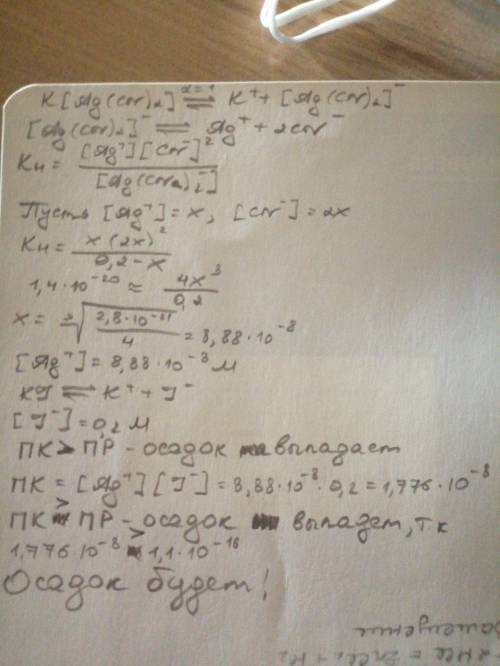 K[Ag(CN)₂] ⇌ K⁺ + [Ag(CN)₂]⁻ α=1
[Ag(CN)₂]⁻ ⇌ Ag⁺ + 2CN⁻
Kн = [Ag⁺][CN⁻]² / [Ag(CN)₂⁻]
Пусть [Ag⁺] = x, [CN⁻] = 2x
Kн = x(2x)² / 0,2-x
1,4·10⁻²⁰ ≈ 4x³ / 0,2
x = ³√(2,8·10⁻²¹ / 4) = 8,88·10⁻⁸
[Ag⁺] = 8,88·10⁻⁸ М
KI ⇌ K⁺ + I⁻
[I⁻] = 0,2 М
ПК > ПР - осадок выпадает
ПК = [Ag⁺][I⁻] = 8,88·10⁻⁸·0,2 = 1,776·10⁻⁸
ПК > ПР - осадок выпадет, т.к
1,776·10⁻⁸ > 1,1·10⁻¹⁶
Осадок будет!
замещение
2HCl = ZnCl₂ + H₂